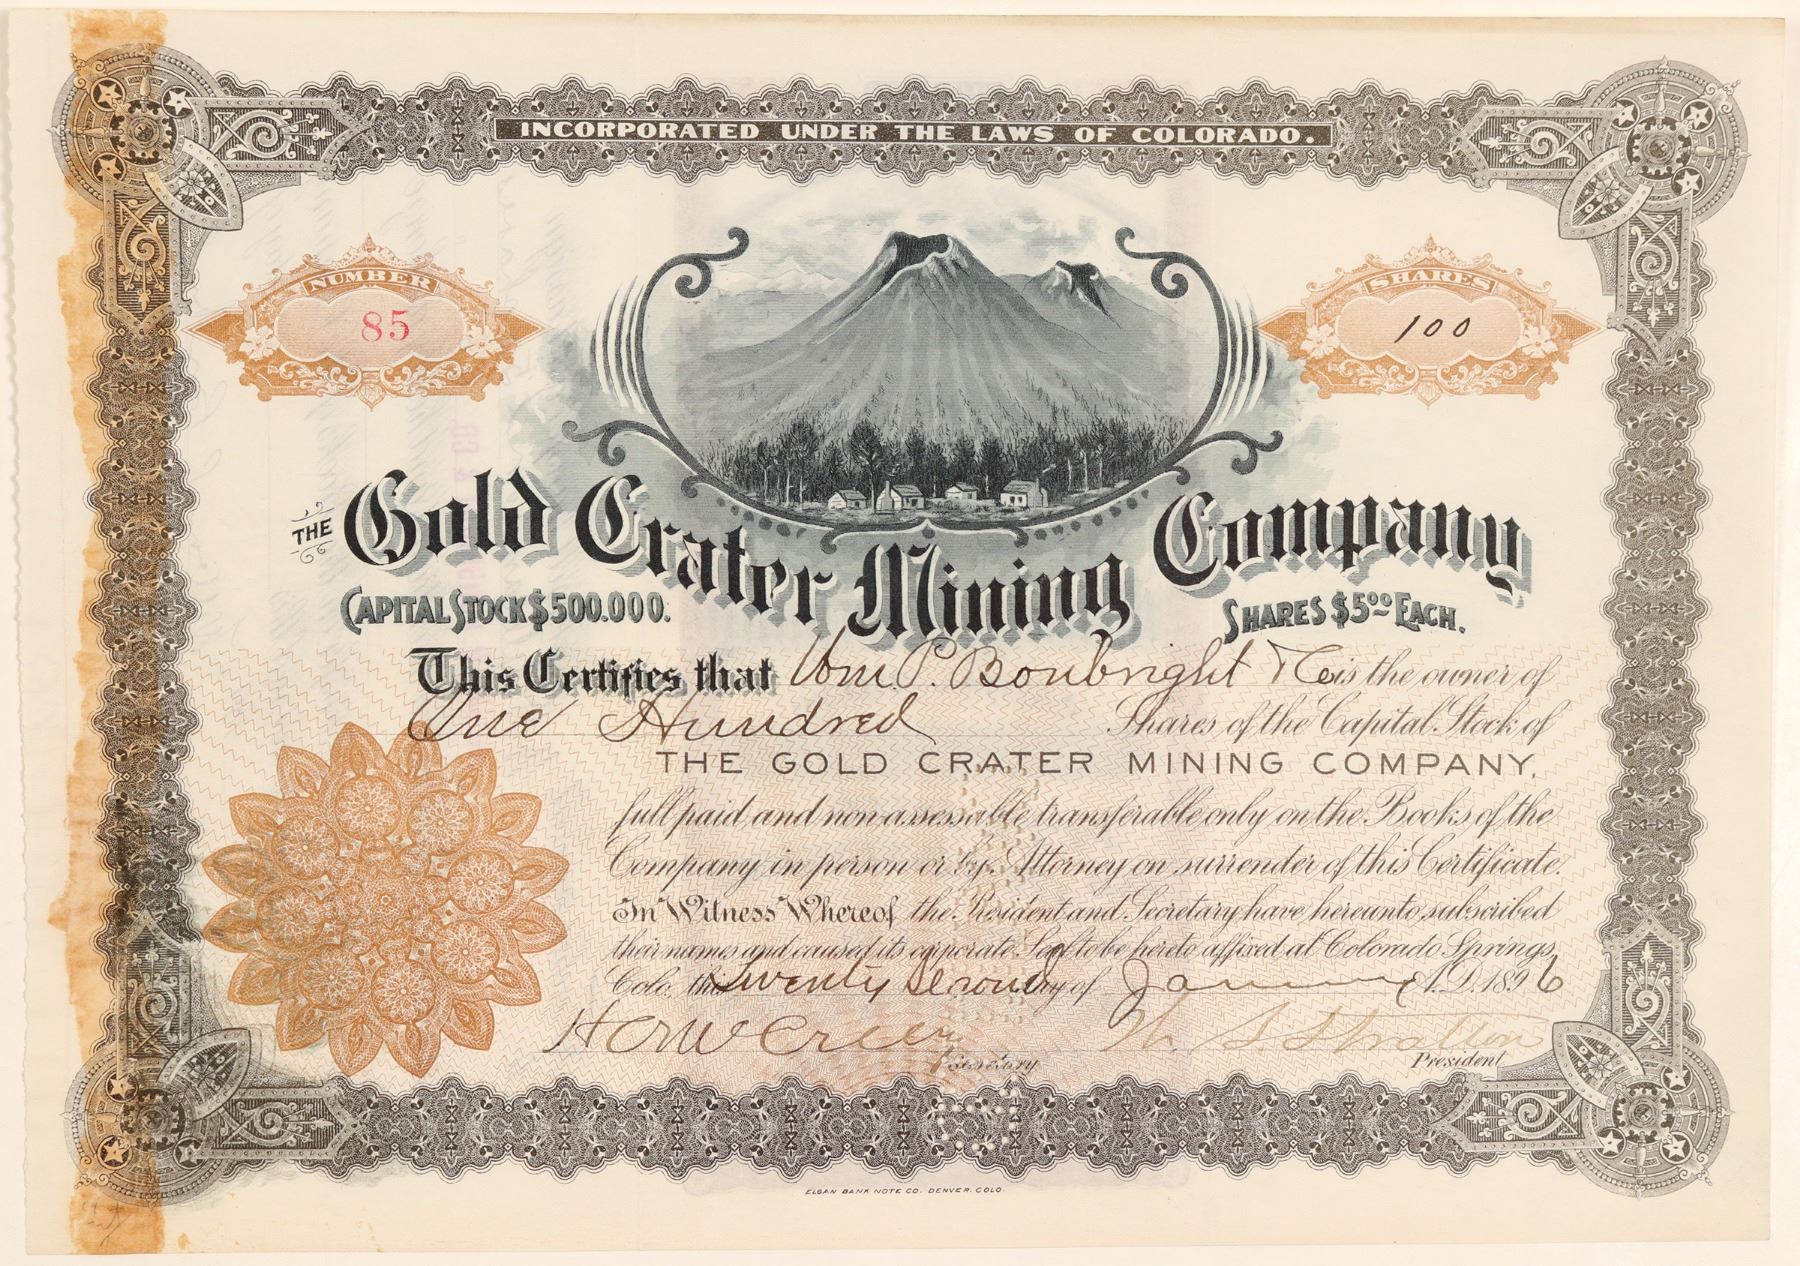 INCORPORATED UNDER THE LAWS OF COLORADO.
NUMBER
85
SHARES
100
THE Gold Crater Mining Company
CAPITAL STOCK $500.000.
SHARES $5.00 EACH.
This Certifies that Wm. P. Bonbright & Co is the owner of
One Hundred Shares of the Capital Stock of
THE GOLD CRATER MINING COMPANY,
full paid and non-assessable transferable only on the Books of the
Company in person or by Attorney on surrender of this Certificate.
In Witness Whereof the President and Secretary have hereunto subscribed
their names and caused its corporate Seal to be hereto affixed at Colorado Springs,
Colo, this twenty second day of January A.D. 1896
Stratton
Secretary
President
ELGAN BANK NOTE CO. DENVER. COLO.